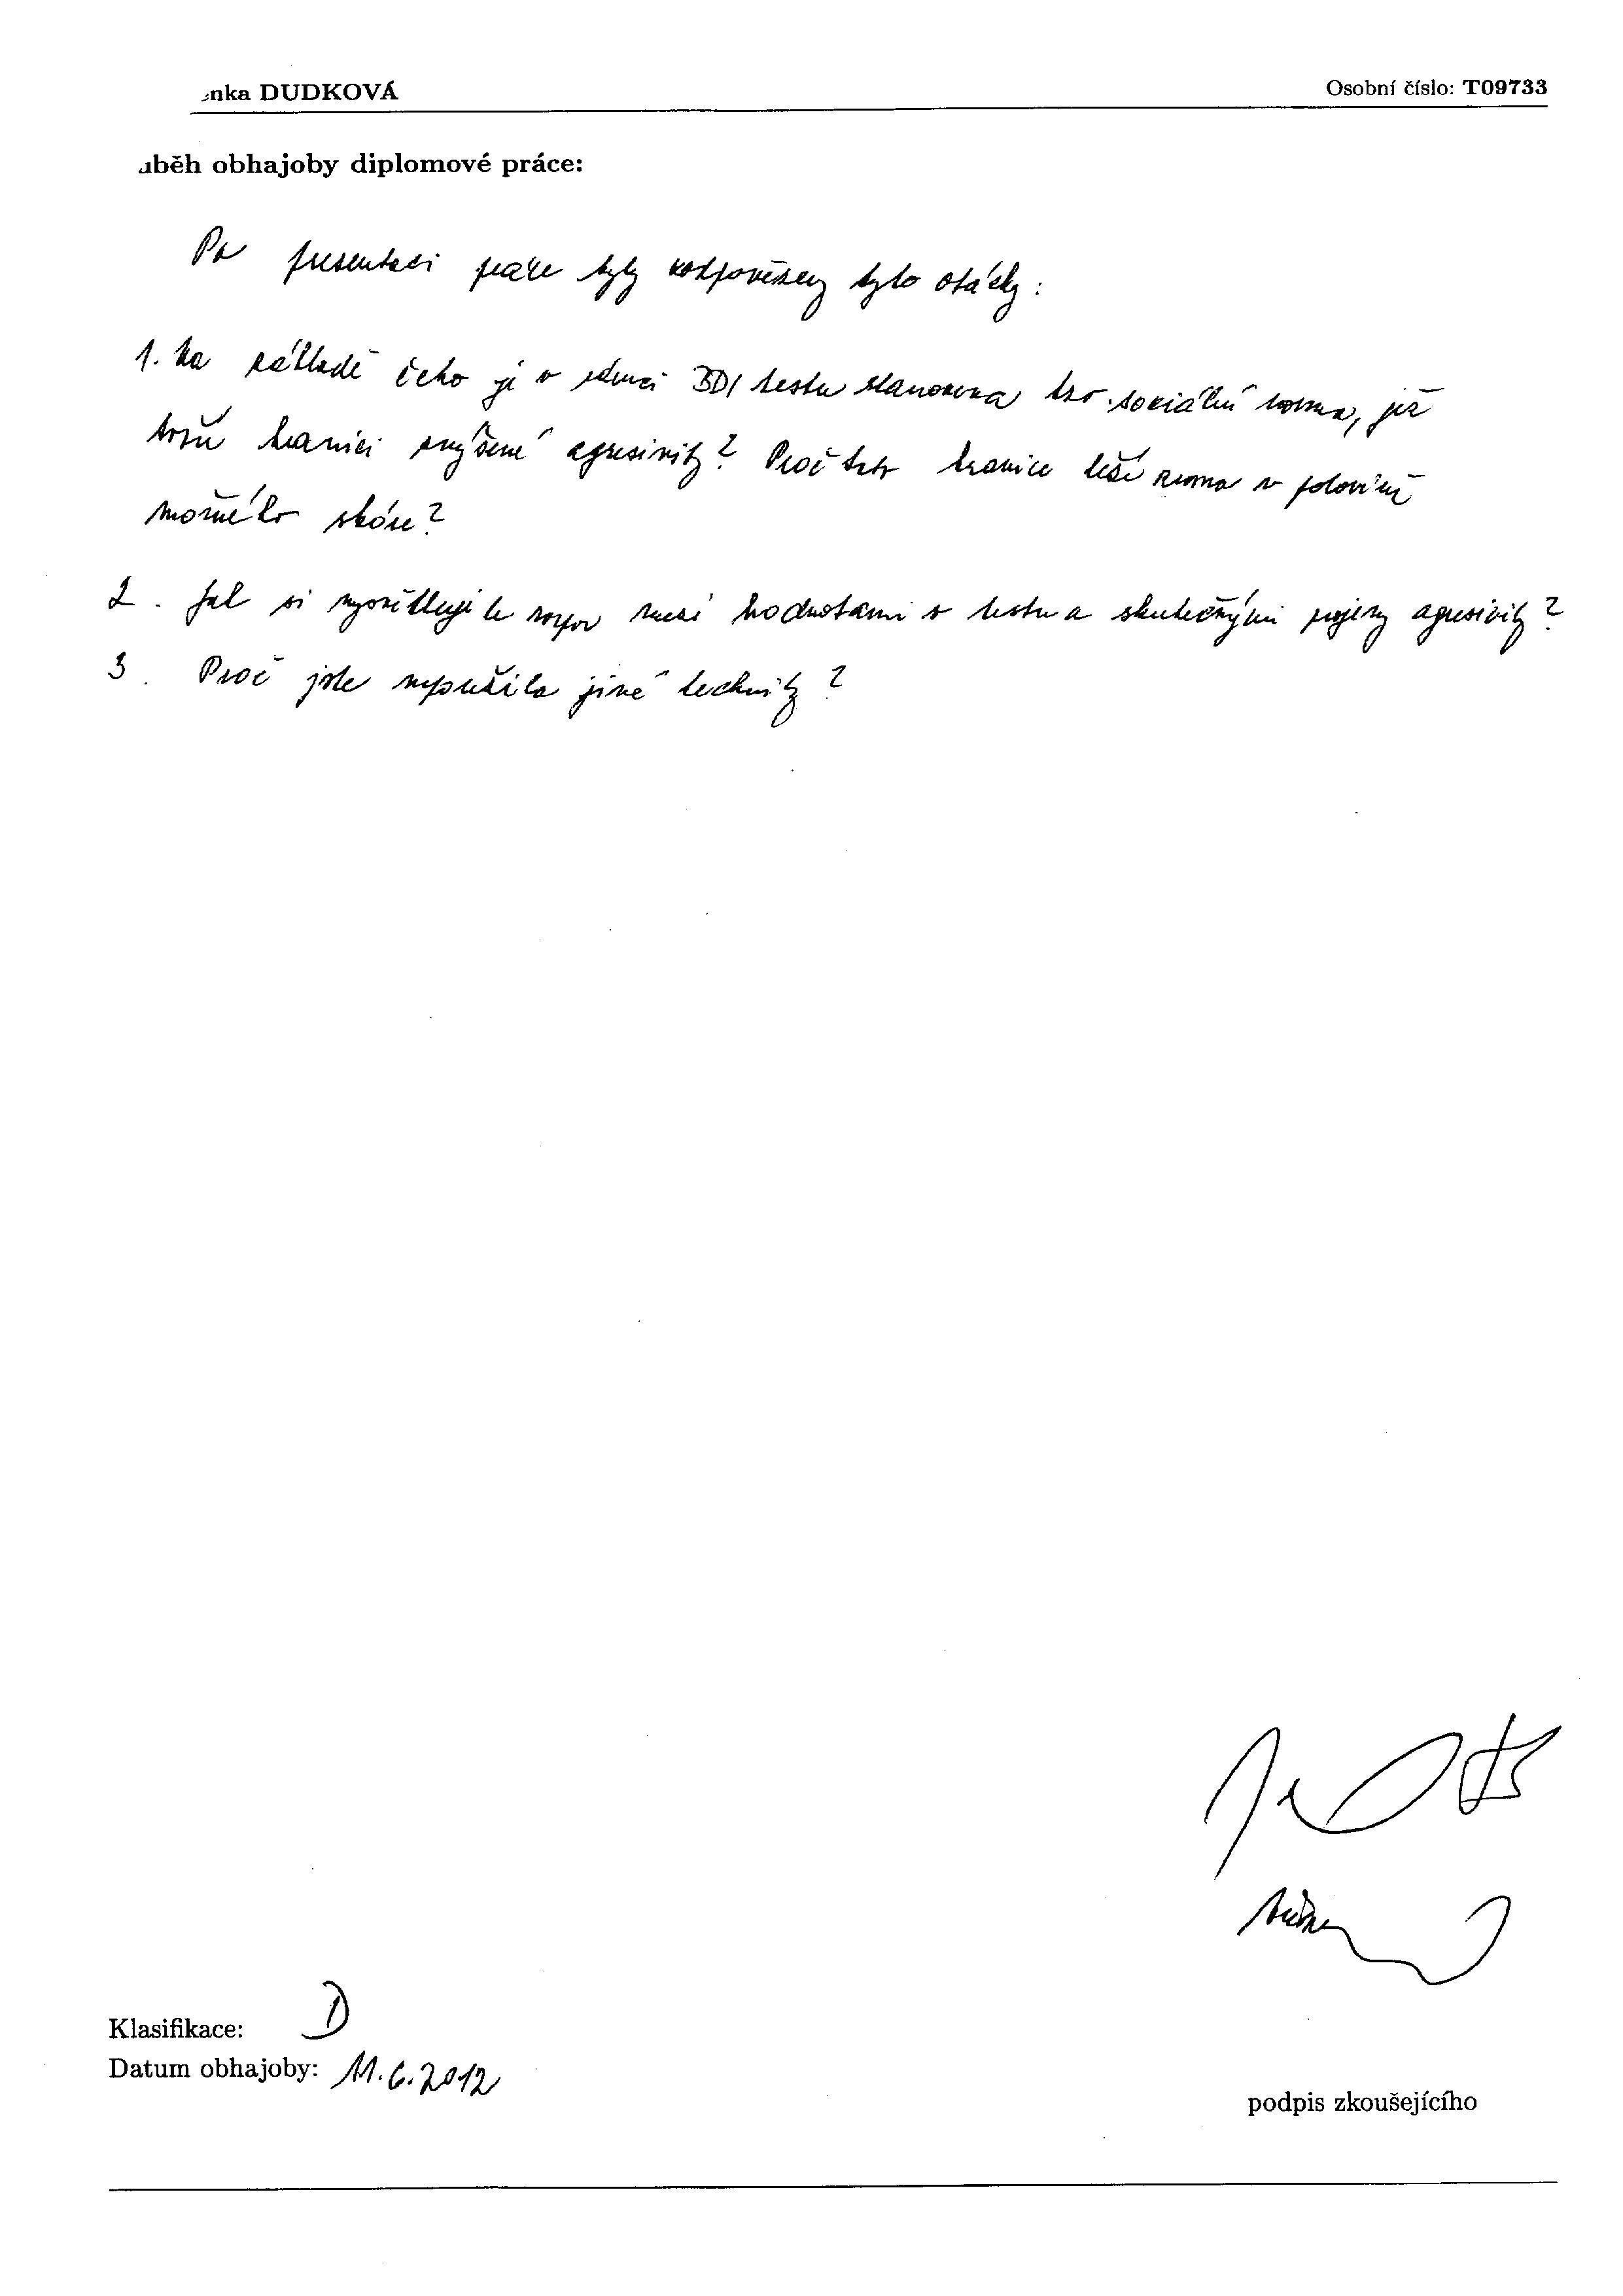 nka DUDKOVÁ
Osobní číslo: T09733
běh obhajoby diplomové práce:
Po presentaci práce byly zodpovězeny tyto otázky:
1. Na základě čeho je v rámci BDI testu stanovena tzv. sociální norma, jež
tvoří hranici zvýšené agresivity? Proč tato hranice leží zrovna v polovině
možného skóre?
2. Jak si vysvětlujete rozpor mezi hodnotami v testu a skutečnými projevy agresivity?
3. Proč jste nepoužila jiné techniky?
Klasifikace: D
Datum obhajoby: 11.6.2012
podpis zkoušejícího